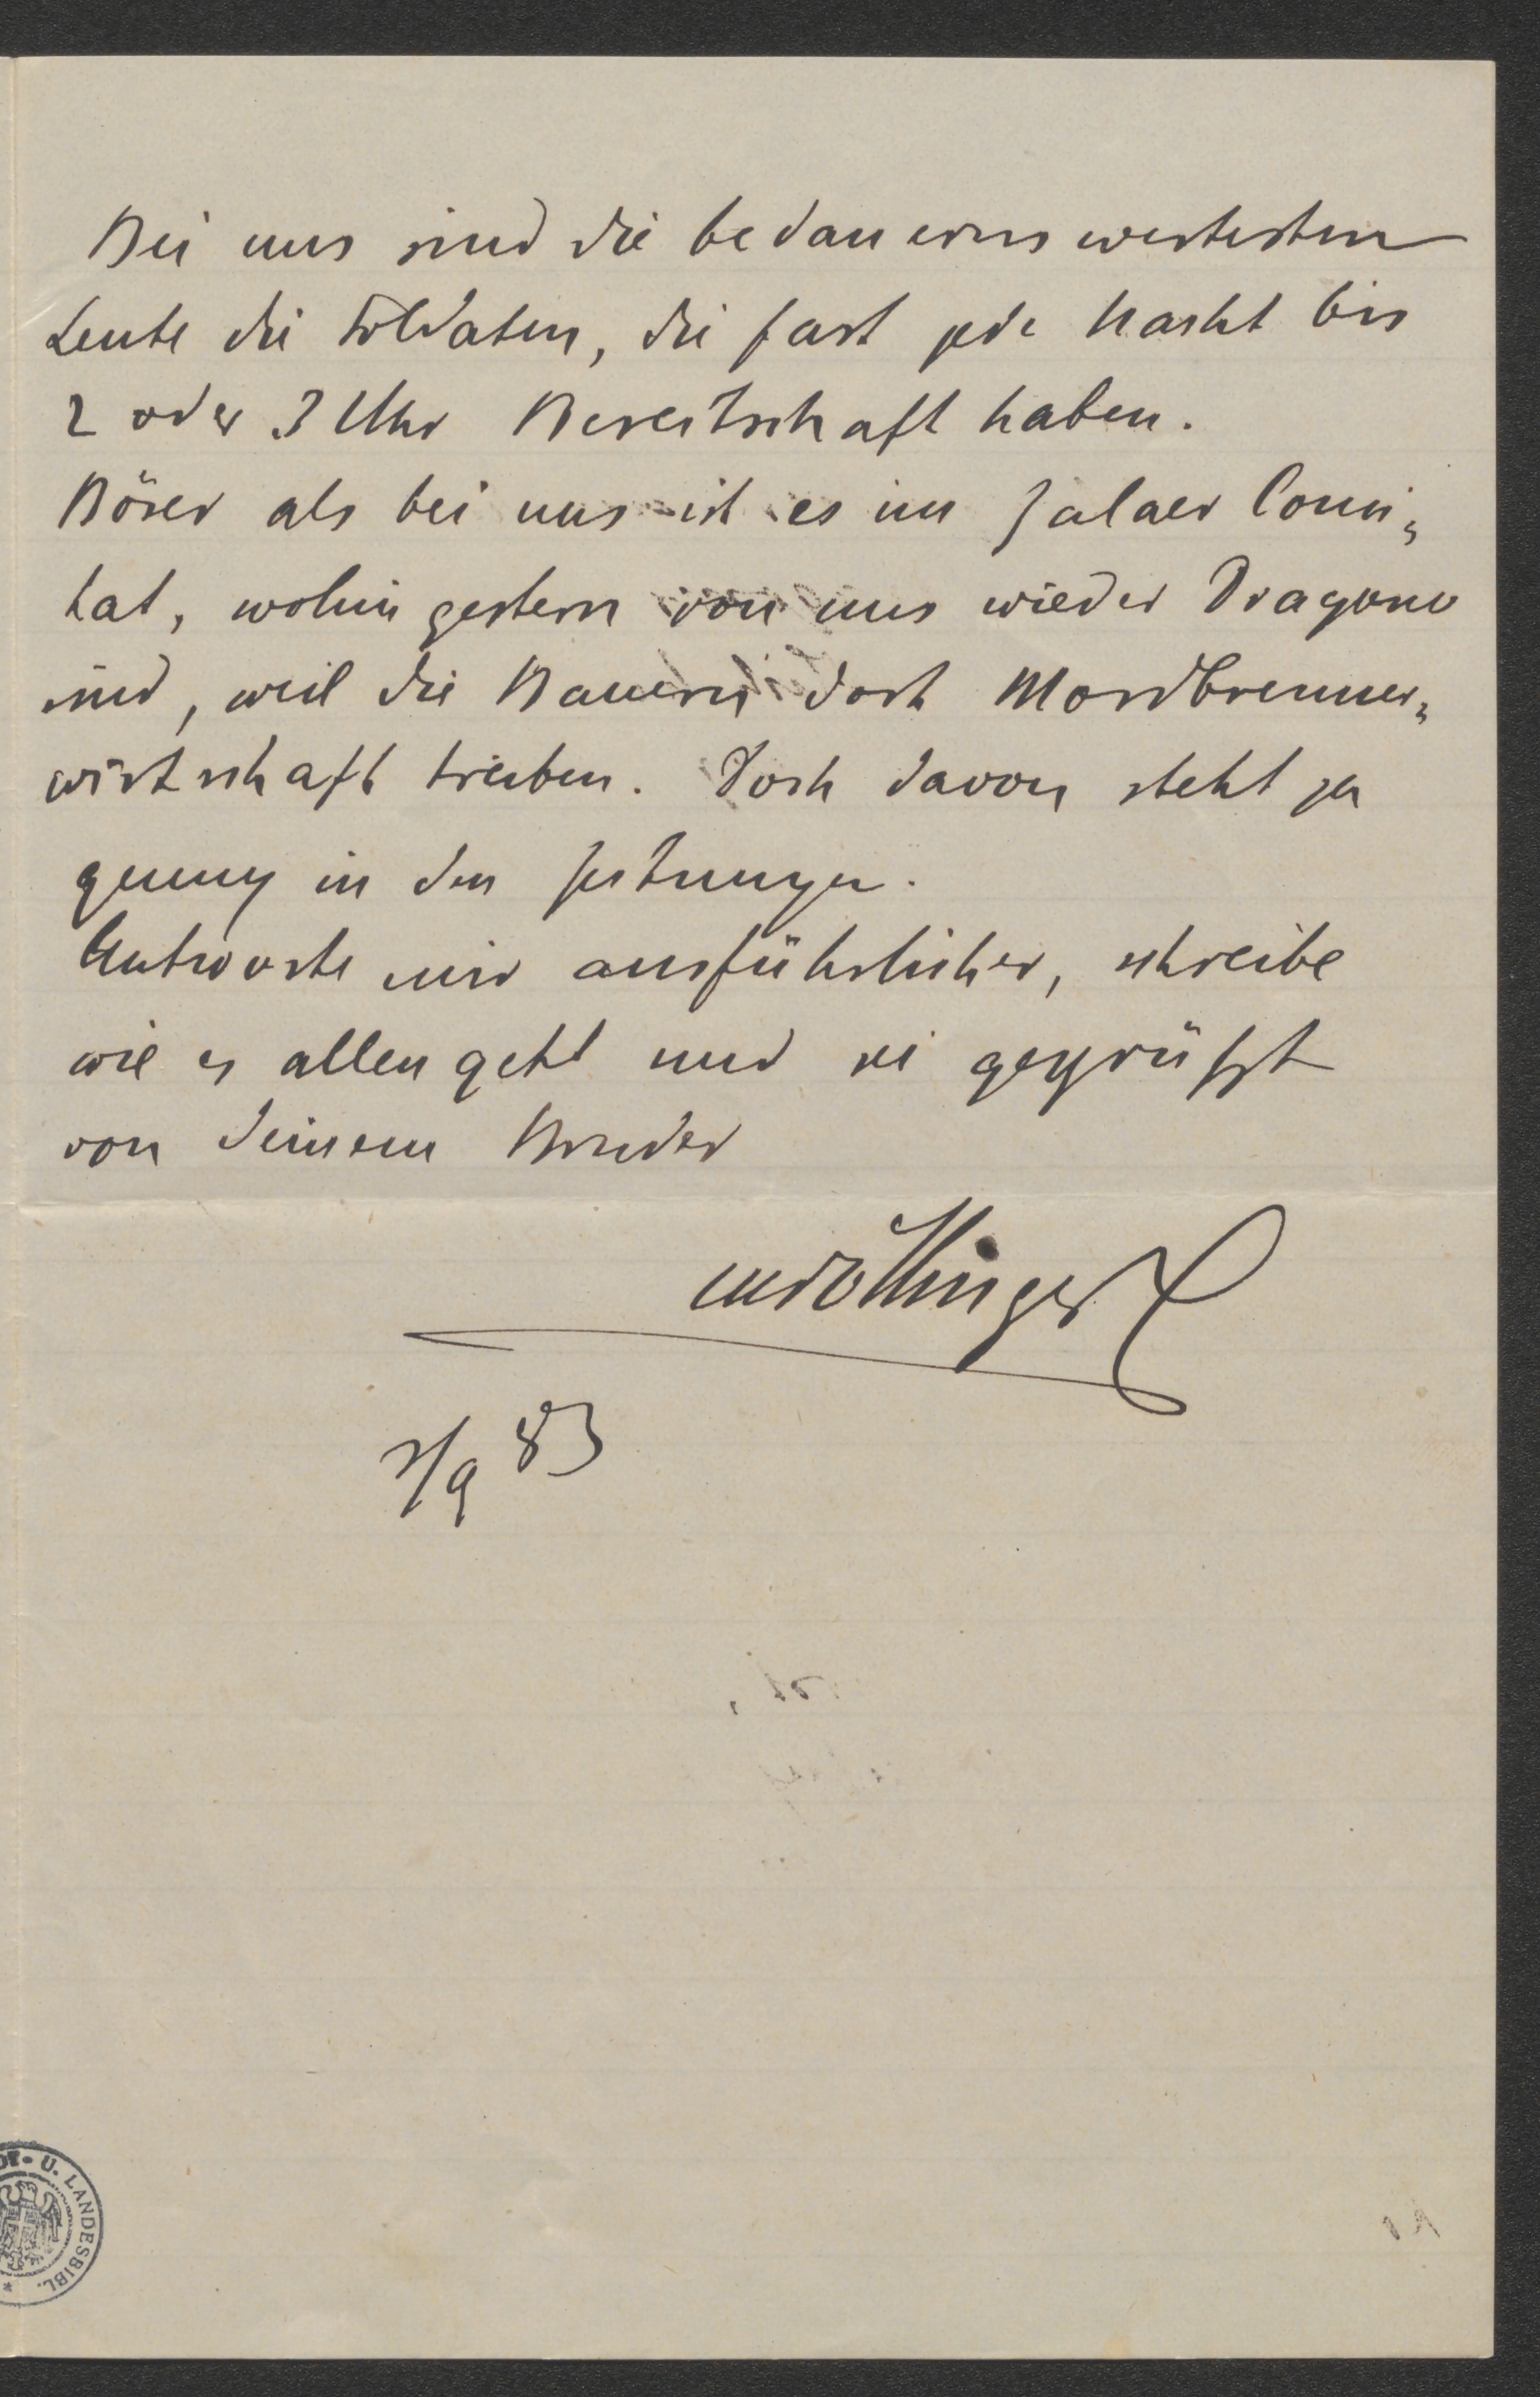 Bei uns sind die bedauernswertesten
Leute die Soldaten, die fast jede Nacht bis
2 oder 3 Uhr Bereitschaft haben.
Böser als bei uns ist es im Zalaer Comi„
tat, wohin gestern von uns wieder Dragoner
sind, weil die Bauern dort Mordbrenner„
wirtschaft treiben. Doch davon steht ja
genug in den Zeitungen.
Antworte mir ausführlicher, schreibe
wie es allen geht und sei gegrüßt
von deinem Bruder
/9 83
U. LANDESBIBL.